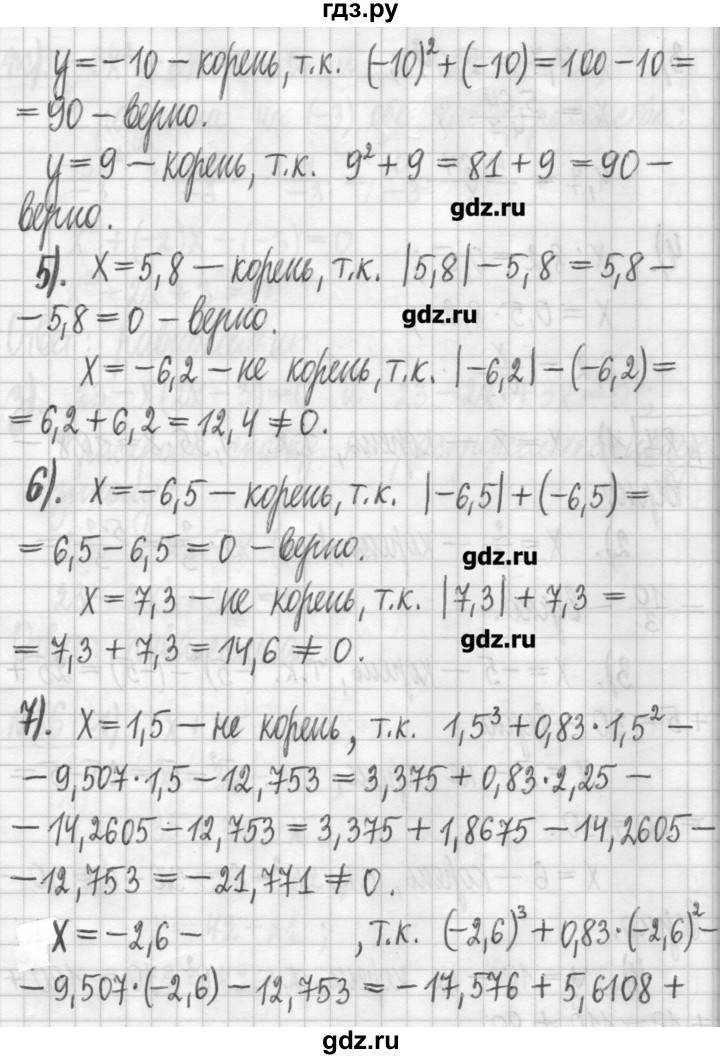 гдз.ру
y = -10 – корень, т.к. (-10)² + (-10) = 100 - 10 =
= 90 – верно.
y = 9 – корень, т.к. 9² + 9 = 81 + 9 = 90 –
верно.
gdz.ru
5). x = 5,8 – корень, т.к. |5,8| - 5,8 = 5,8 -
- 5,8 = 0 – верно.
gdz.ru
x = -6,2 – не корень, т.к. |-6,2| - (-6,2) =
= 6,2 + 6,2 = 12,4 ≠ 0.
6). x = -6,5 – корень, т.к. |-6,5| + (-6,5) =
= 6,5 - 6,5 = 0 – верно.
gdz.ru
x = 7,3 – не корень, т.к. |7,3| + 7,3 =
= 7,3 + 7,3 = 14,6 ≠ 0.
gdz.ru
7). x = 1,5 – не корень, т.к. 1,5³ + 0,83 · 1,5² -
- 9,507 · 1,5 - 12,753 = 3,375 + 0,83 · 2,25 -
- 14,2605 - 12,753 = 3,375 + 1,8675 - 14,2605 -
- 12,753 = -21,771 ≠ 0.
x = -2,6 – , т.к. (-2,6)³ + 0,83 · (-2,6)² -
- 9,507 · (-2,6) - 12,753 = -17,576 + 5,6108 +
gdz.ru